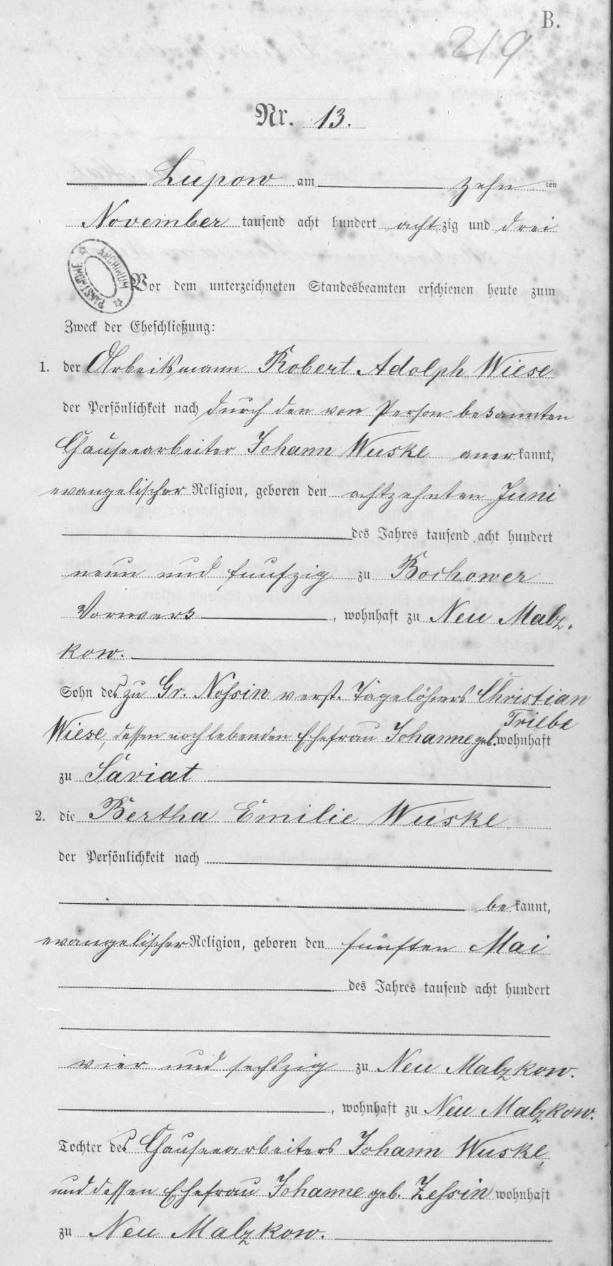 B.
219
Nr. 13.
Lupow am zehn ten
November tausend acht hundert achtzig und drei
Vor dem unterzeichneten Standesbeamten erschienen heute zum
Zweck der Eheschließung:
1. der Arbeitsmann Robert Adolph Wiese
der Persönlichkeit nach durch den von Person bekannten
Chauseearbeiter Johann Wuske anerkannt,
evangelischer Religion, geboren den achtzehnten Juni
des Jahres tausend acht hundert
neun und funfzig zu Bochower
Vorwerk, wohnhaft zu Neu Malz-
kow.
Sohn des zu Gr. Nossin verst. Tagelöhners Christian
Wiese, dessen noch lebenden Ehefrau Johanne geb. Triebe wohnhaft
zu Saviat
2. die Bertha Emilie Wuske
der Persönlichkeit nach
bekannt,
evangelischer Religion, geboren den fünften Mai
des Jahres tausend acht hundert
vier und sechszig zu Neu Malzkow.
, wohnhaft zu Neu Malzkow.
Tochter des Chauseearbeiters Johann Wuske
und dessen Ehefrau Johanne geb. Zessin wohnhaft
zu Neu Malzkow.